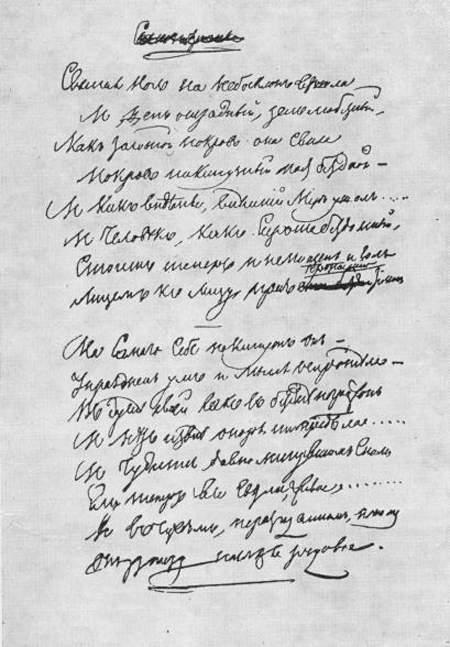 Святая ночь на небосклонъ взошла
И день отрадный, день любезный,
Какъ золотой покровъ она свила
Покровъ накинутый надъ бездной –
И какъ видѣнье, внѣшній міръ ушелъ....
И Человѣкъ, какъ Сирота бездомный,
Стоитъ теперь и немощенъ и голъ
Лицемъ къ лицу предъ пропастію
На самого себя покинутъ онъ –
Упраздненъ умъ и мысль осиротѣла –
Въ душѣ своей какъ въ безднѣ погруженъ
И нѣтъ извнѣ опоры ни предѣла.....
И чудится давно минувшимъ сномъ
Ему теперь все свѣтлое, живое........
И въ чуждомъ, неразгаданномъ, ночномъ
Онъ узнаетъ наслѣдье родовое.